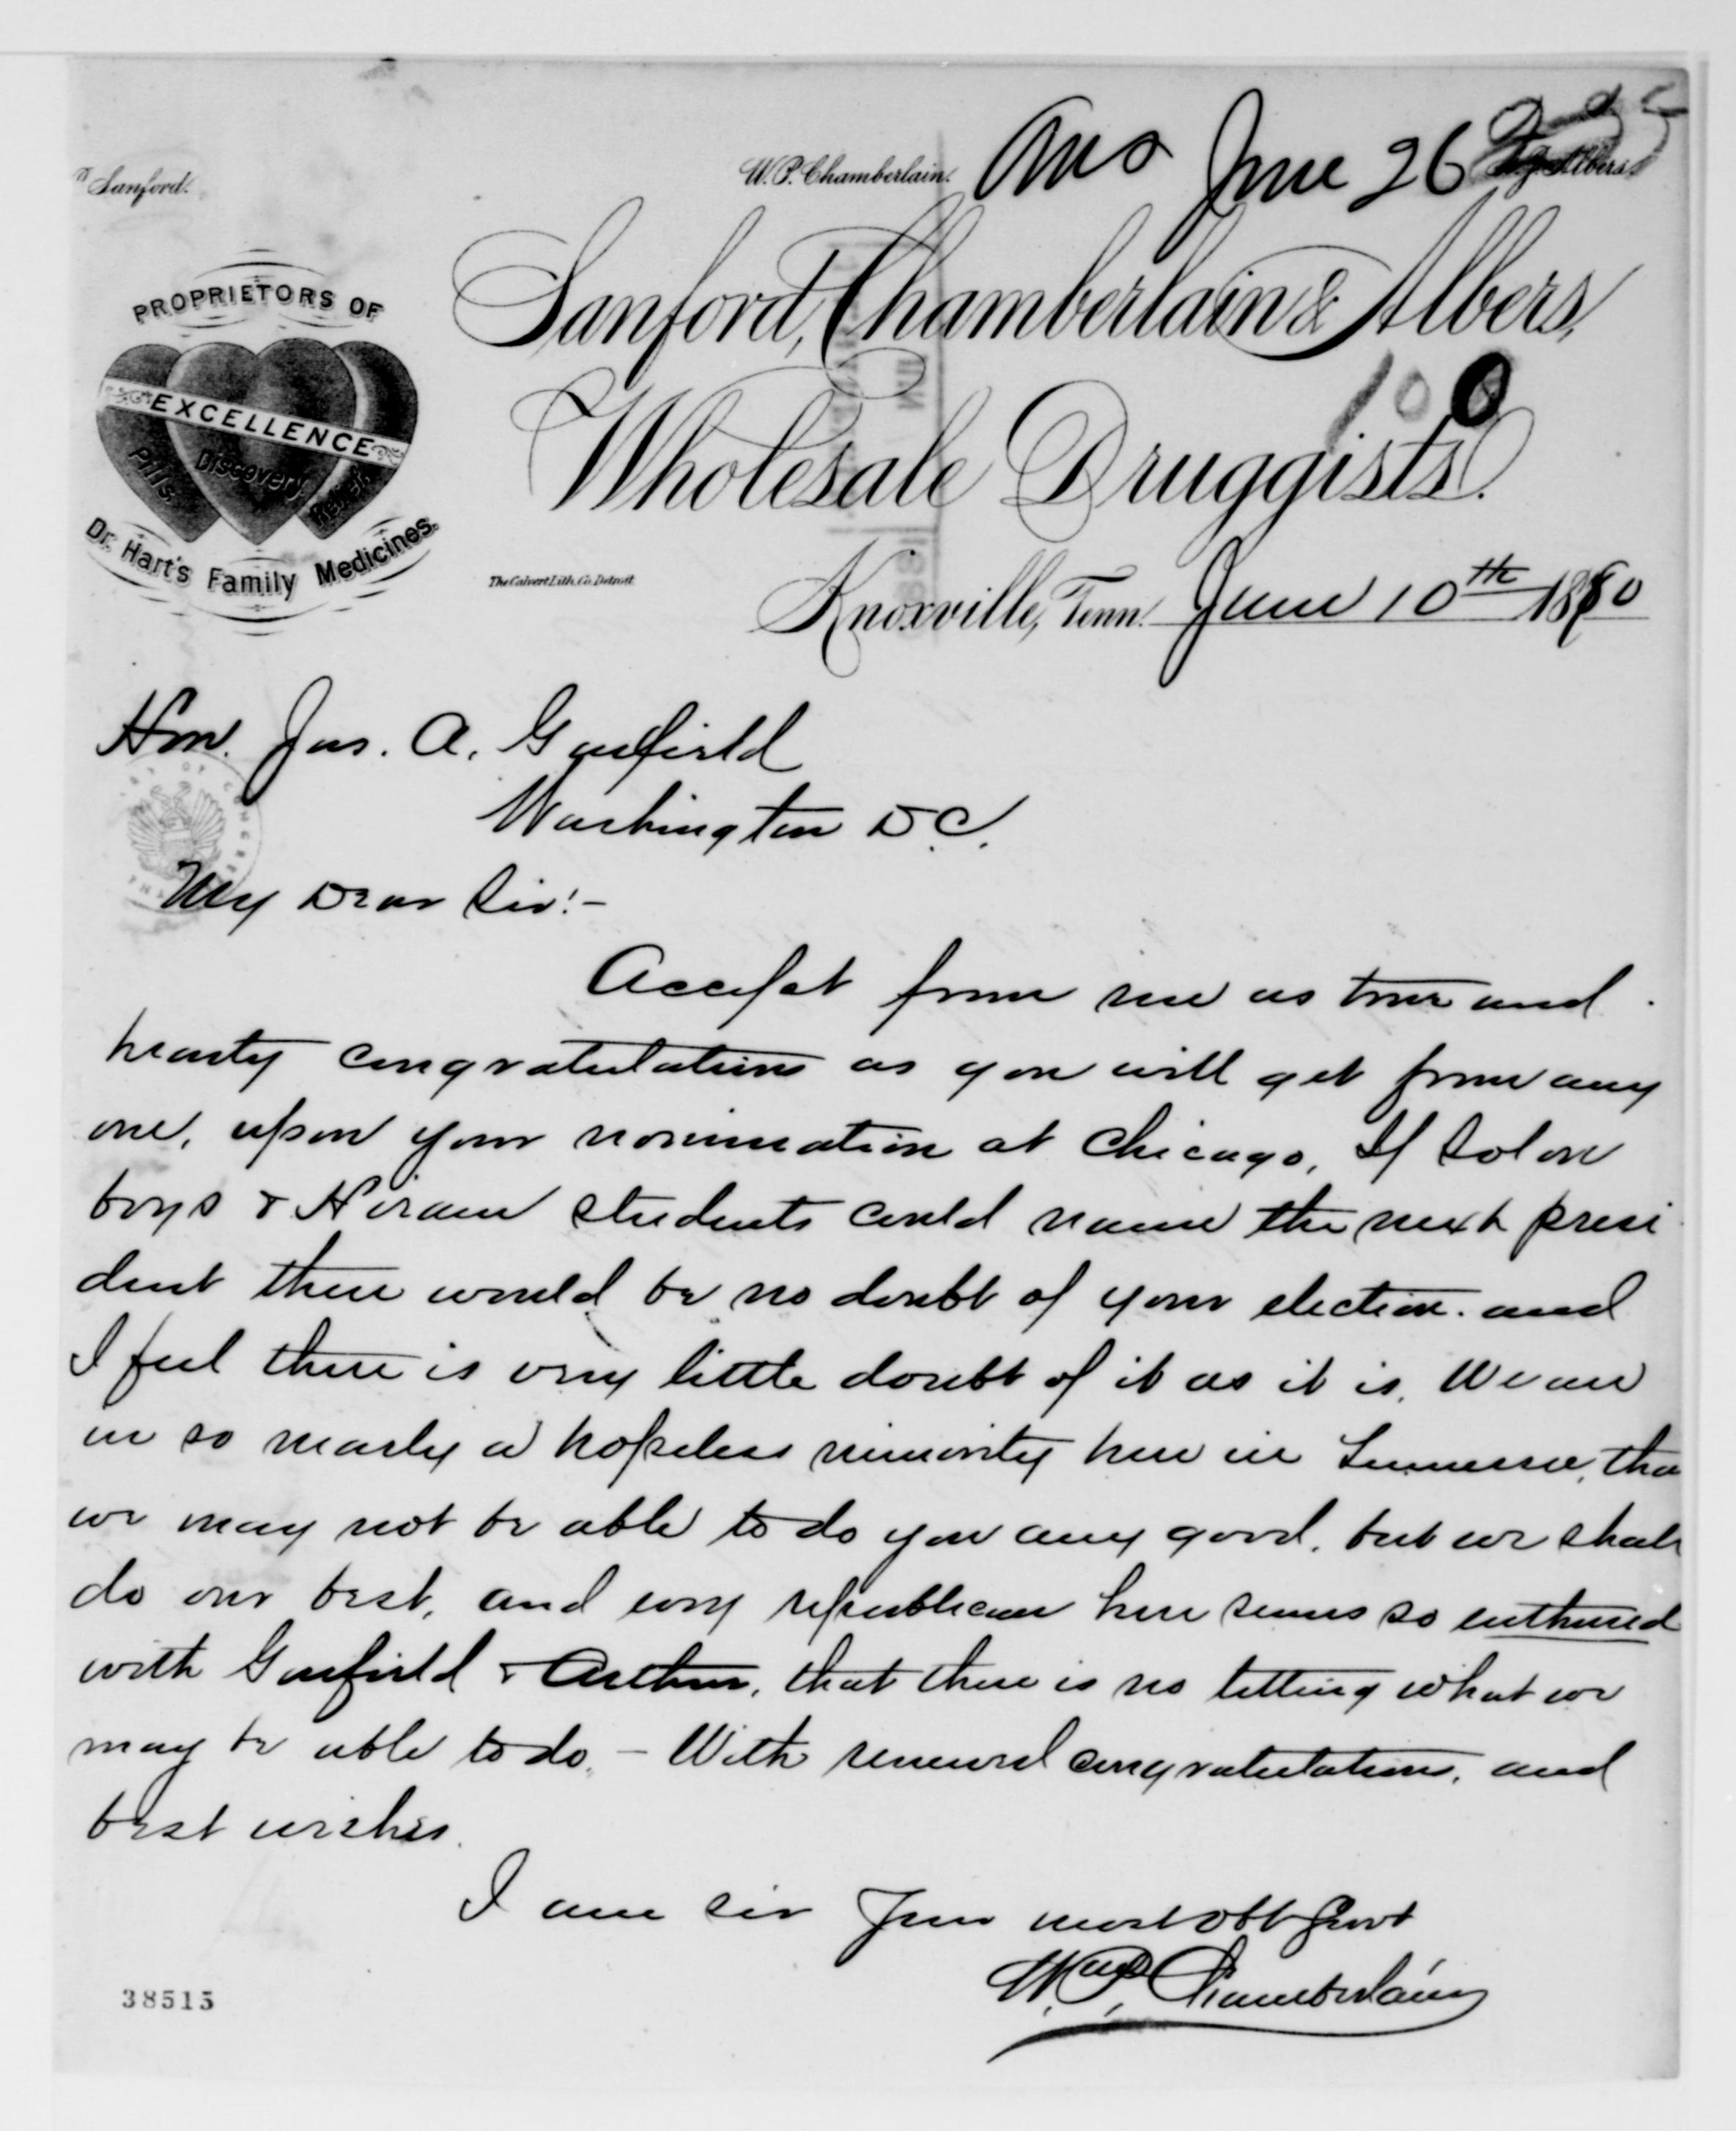 Sanford.
W. P. Chamberlain.
Ans June 26
Albers
PROPRIETORS OF
EXCELLENCE
Pills Discovery Relief
Dr. Hart's Family Medicines.
Sanford, Chamberlain & Albers,
100
Wholesale Druggists.
The Calvert Lith. Co. Detroit.
Knoxville, Tenn. June 10th 1880
Hon. Jas. A. Garfield
Washington D.C.
My Dear Sir:-
Accept from me as true and
hearty congratulations as you will get from any
one, upon your nomination at Chicago, If Solon
boys & Hiram students could name the next presi
dent there would be no doubt of your election. and
I feel there is very little doubt of it as it is. We are
in so nearly a hopeless minority here in Tennessee, tha
we may not be able to do you any good, but we shall
do our best, and every republican here seems so enthused
with Garfield & Arthur, that there is no telling what we
may be able to do. - With renewed congratulations, and
best wishes.
I am sir Your most Obt Servt
W. P. Chamberlain
38515